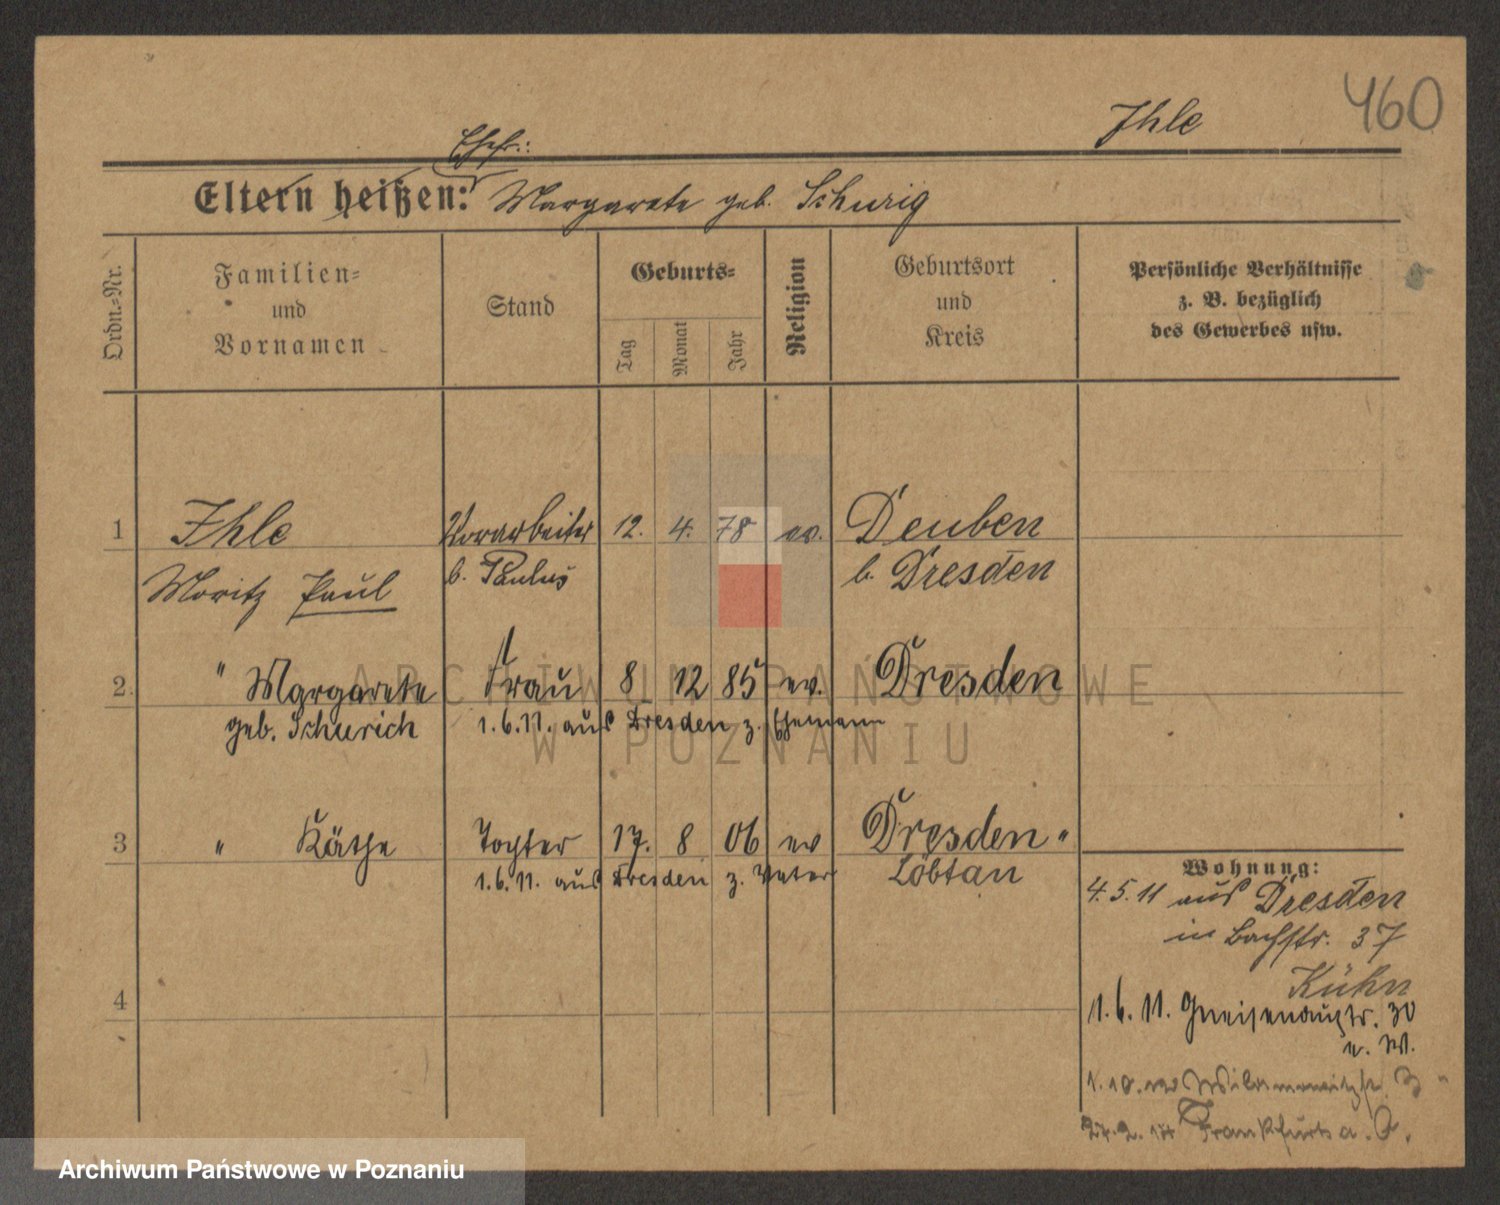 460
Ihle
Ehefr.:
Eltern heißen: Margarete geb. Schurig
Ordn.=Nr.
Familien=
und
Vornamen
Stand
Geburts=
Tag
Monat
Jahr
Religion
Geburtsort
und
Kreis
Persönliche Verhältnisse
z. B. bezüglich
des Gewerbes usw.
1 Ihle Vorarbeiter 12. 4. 78 ev. Deuben
Moritz Paul b. Paulus b. Dresden
2. " Margarete Frau 8 12 85 ev. Dresden
geb. Schurich 1.6.11. aus Dresden z. Ehemann
3 " Käthe Tochter 17. 8 06 ev Dresden"
1.6.11. aus Dresden z. Vater Löbtau
4
Wohnung:
4.5.11 aus Dresden
in Bachstr. 37
Kühn
1.6.11. Gneisenaustr. 30
u. W.
1.10. Wilamowitzstr. 3
27.2. Frankfurt a. O.
ARCHIWUM PAŃSTWOWE
W POZNANIU
Archiwum Państwowe w Poznaniu